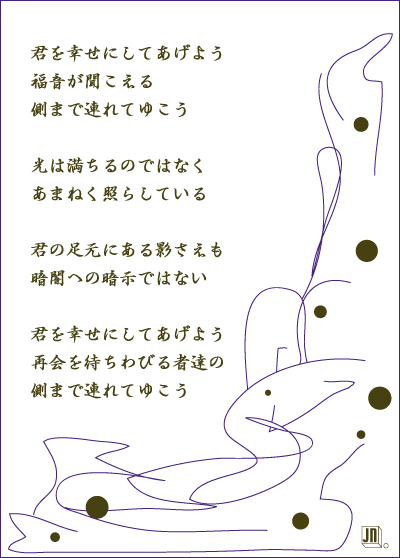 君を幸せにしてあげよう
福音が聞こえる
側まで連れてゆこう
光は満ちるのではなく
あまねく照らしている
君の足元にある影さえも
暗闇への暗示ではない
君を幸せにしてあげよう
再会を待ちわびる者達の
側まで連れてゆこう
JN。